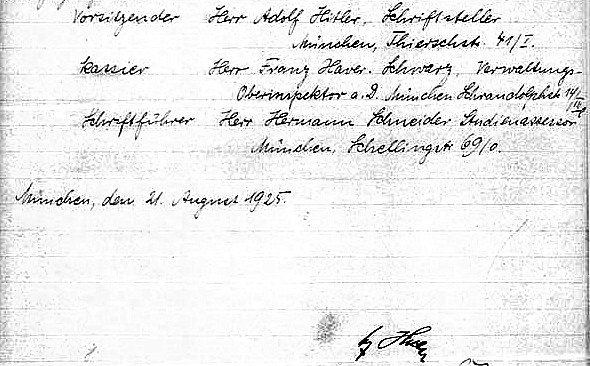 Vorsitzender Herr Adolf Hitler, Schriftsteller
München, Thierschstr. 41/I.
Kassier Herr Franz Xaver Schwarz, Verwaltungs-
Oberinspektor a. D. München Schraudolphstr.
Schriftführer Herr Hermann Schneider Studienassessor
München, Schellingstr 69/0.
München, den 21. August 1925.